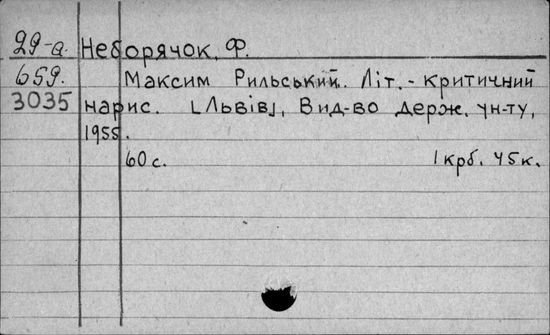 29-а. Неборячок, Ф.
659. Максим Рильський. Літ.-критичний
3035 нарис. [Львів], Вид-во держ. ун-ту,
1955.
60 с. 1 крб. 45 к.